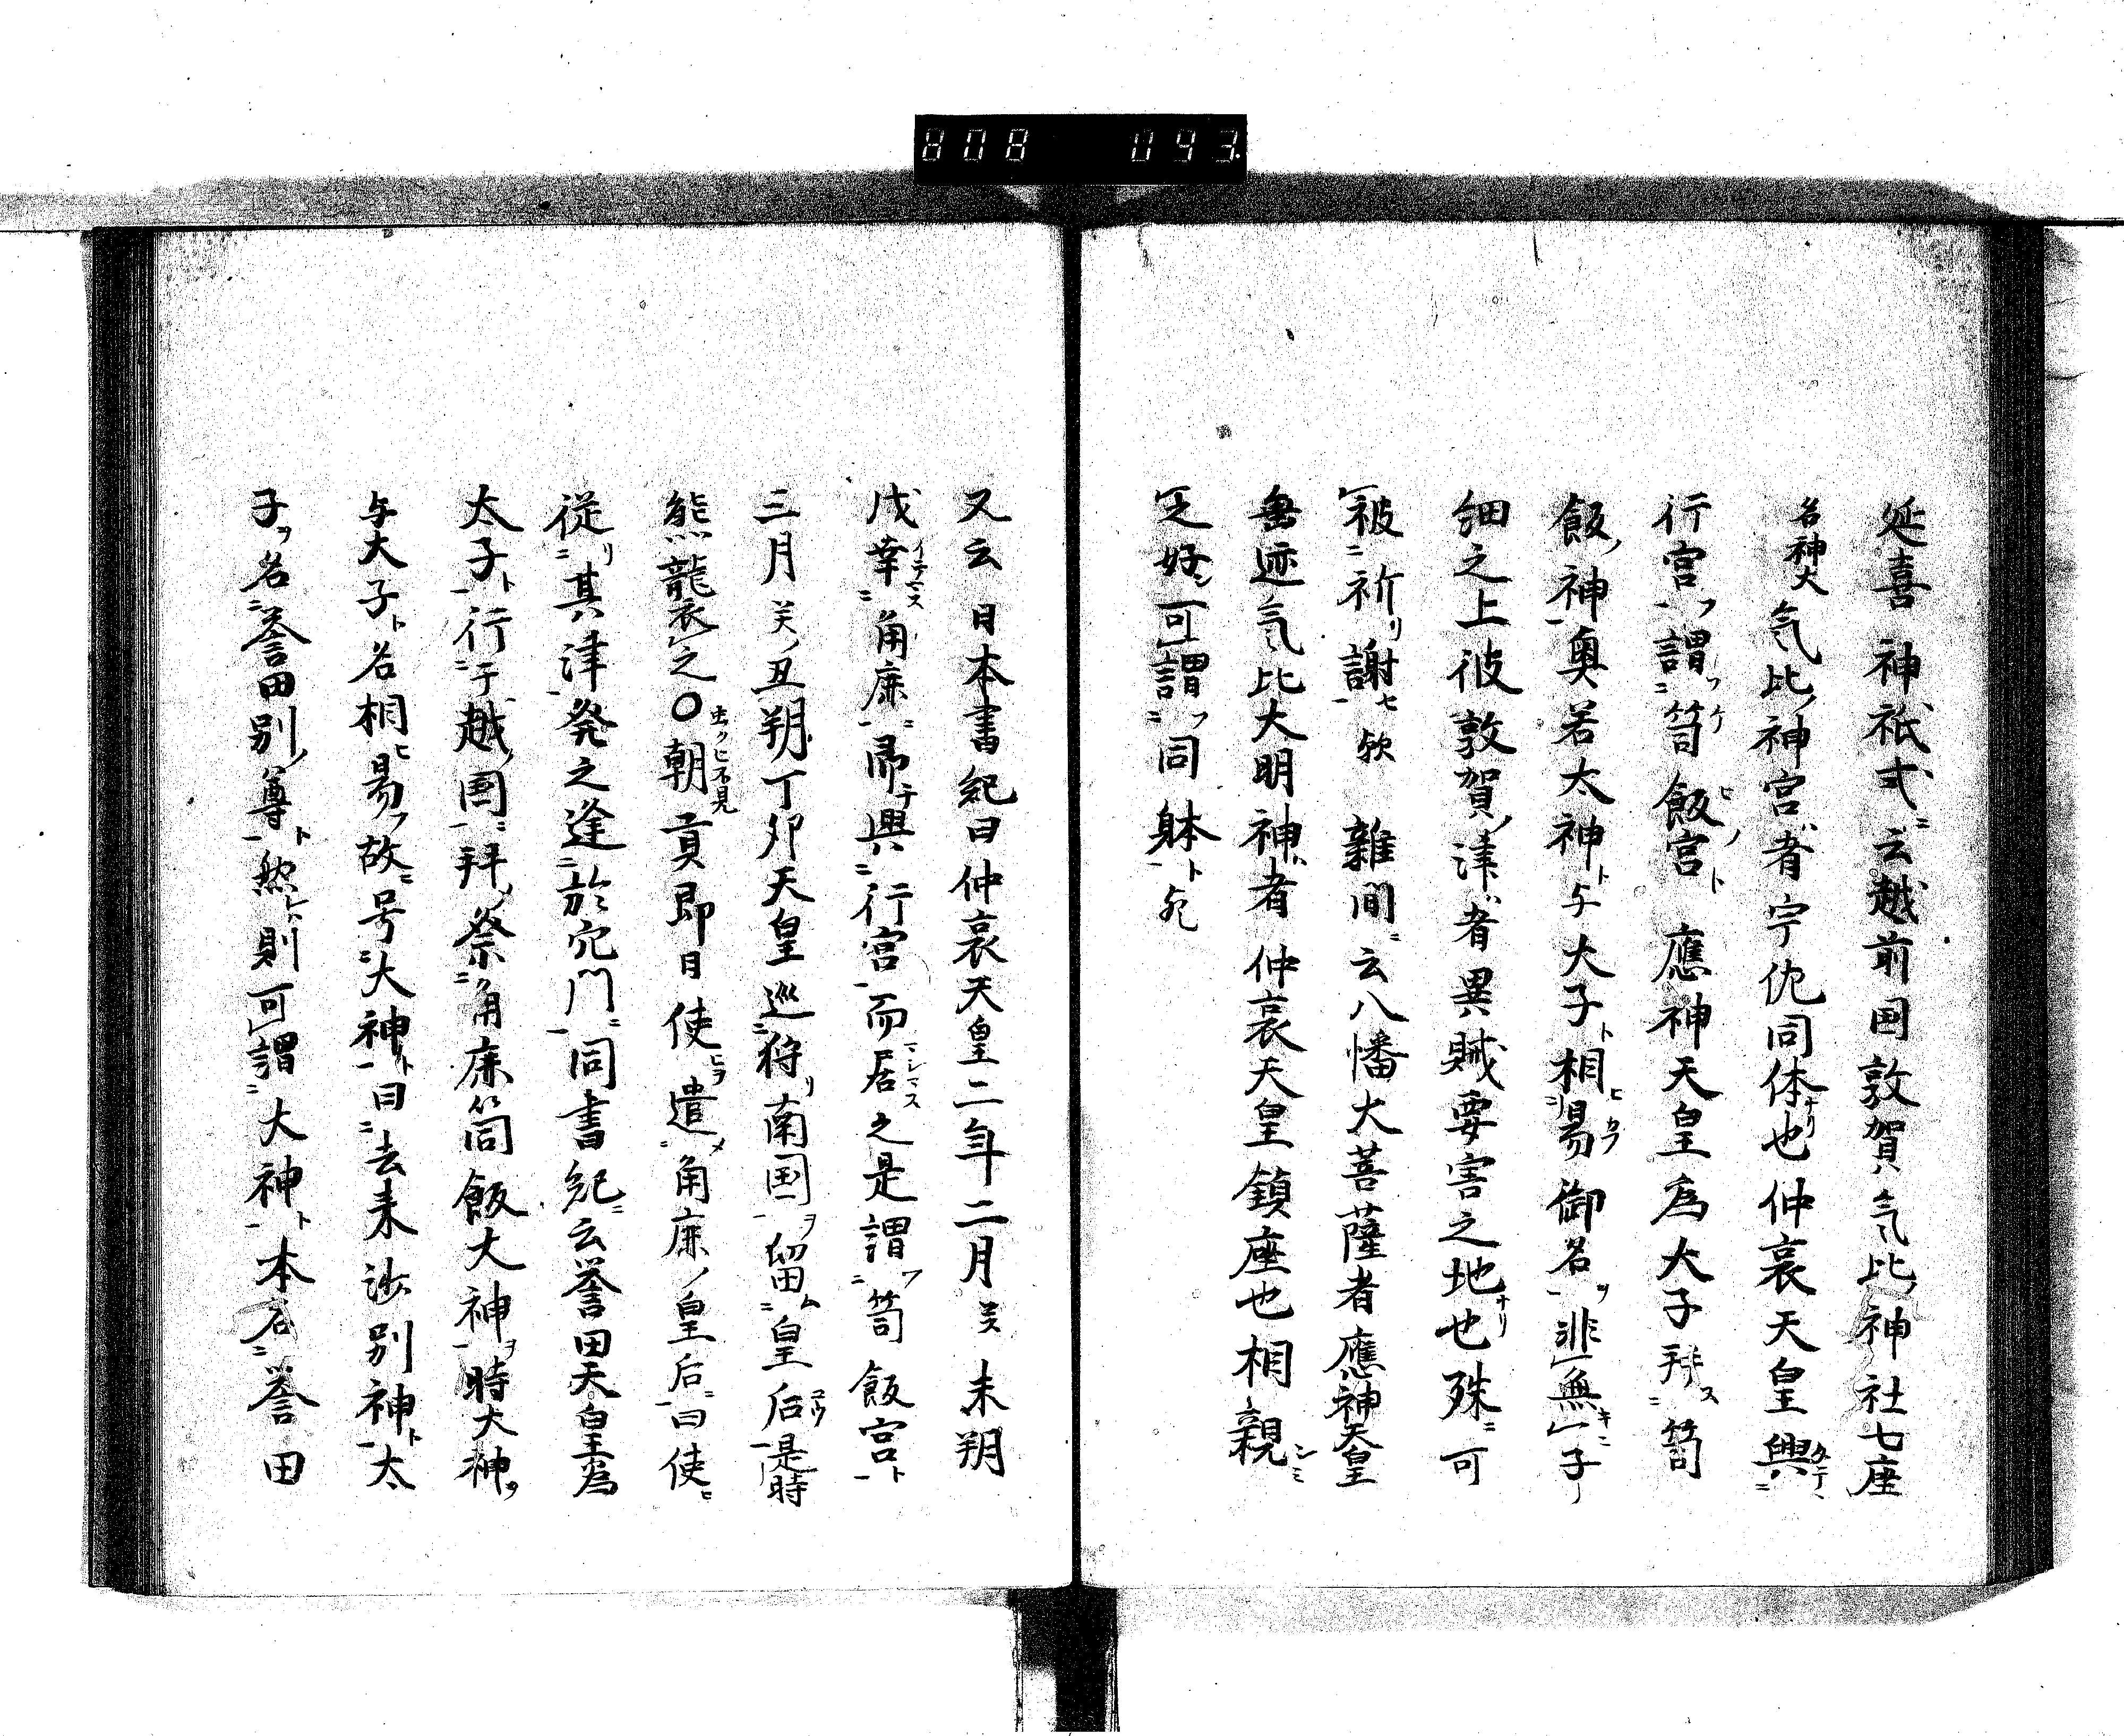 808 043
延喜神祇式ニ云越前国敦賀気比神社七座
名神大気比ノ神宮者宇佐同体ナリ也仲哀天皇興
行宮ヲ謂フ笥飯ノ宮ト應神天皇為大子拜ス笥
飯ノ神奥若太神ト与大子ト相ヒ易カフ御名ヲ非無キニ子
細之上彼敦賀ノ津者異賊要害之地ナリ也殊ニ可
被祈リ謝セ欤雜聞ニ云八幡大菩薩者應神天皇
垂迹気比大明神者仲哀天皇鎮座也相親シミ
之好シ可謂フ同躰ト
又云日本書紀曰仲哀天皇二年二月癸未朔
戊幸角鹿ニ即チ興行宮而居マシマス之是謂フ笥飯宮ト
三月癸丑朔丁卯天皇巡狩リ南国ヲ留ム皇后是時
熊龍衣之〇朝貢即日使ヒヲ遣メ角鹿ノ皇后ニ曰使ヒ
虫クヒ不見
従リ其津発之逢於穴門ニ同書紀ニ云誉田天皇為
太子ト行于越国ニ拜ノ祭角鹿笥飯大神ヲ時大神ヲ
与大子ト名相ヒ易フ故ニ号大神ト曰去来沙別神ト太
子ヲ名誉田別ノ尊ト然則可謂大神ト本名誉田